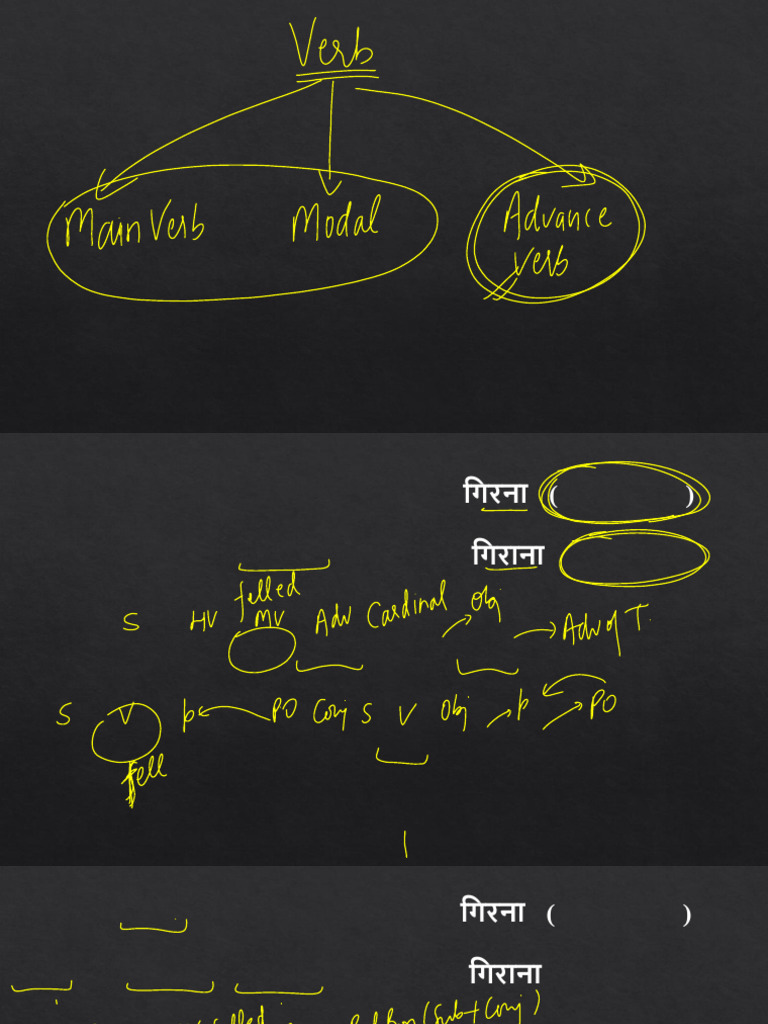 Verb
Main Verb Modal Advance
verb
गिरना ( )
गिराना
felled
S HV MV Adv Cardinal Obj Adv of T.
S V p PO Conj S V Obj p PO
fell
गिरना ( )
गिराना
felled (Sub+Conj)